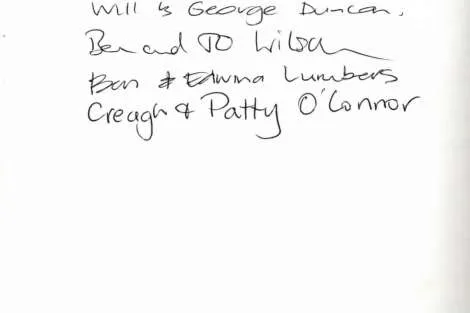 Will & George Duncan.
Ben and JO Wilson
Ben & Edwina Lumbers
Creagh & Patty O'Connor